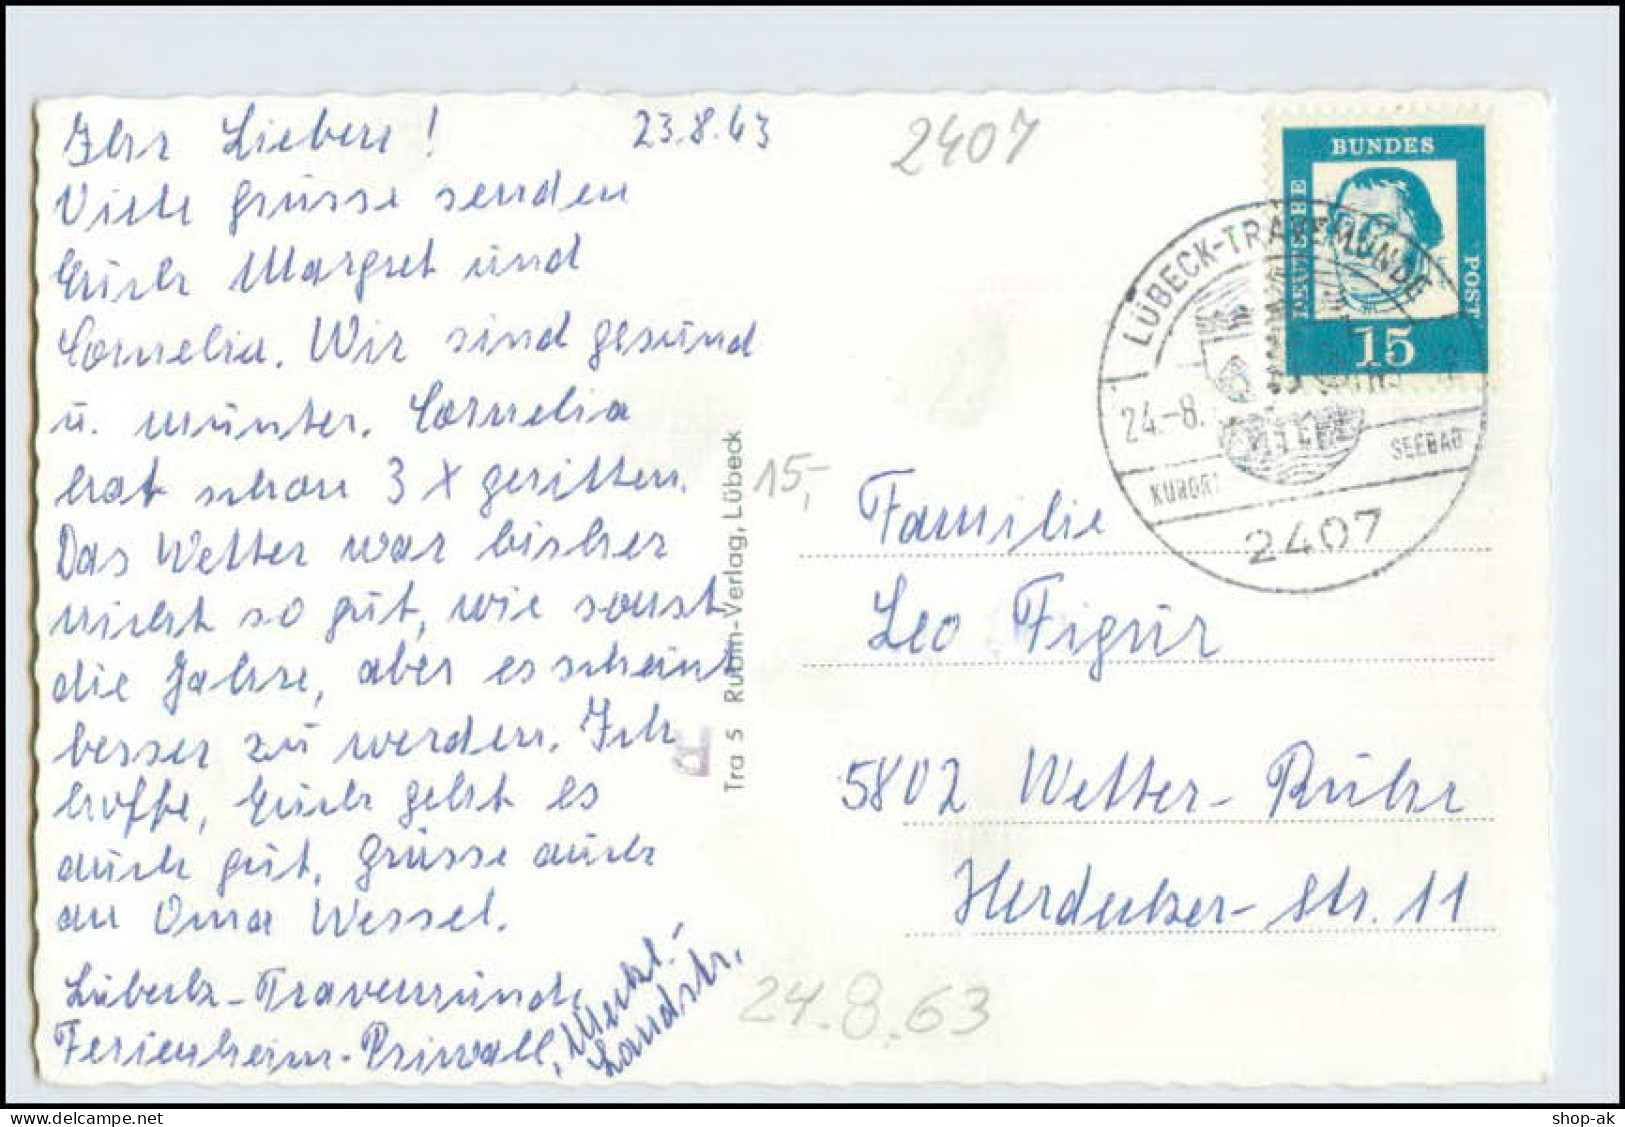 Ihr Lieben!
23.8.63
2407
Viele Grüsse senden
Euch Margret und
Cornelia. Wir sind gesund
u. munter. Cornelia
hat schon 3 x geritten.
Das Wetter war bisher
nicht so gut, wie sonst
die Jahre, aber es scheint
besser zu werden. Ich
hoffe, Euch geht es
auch gut. Grüsse auch
an Oma Wessel.
Lübeck-Travemünde
Ferienheim-Priwall,
Meckl.
Landstr.
Tra 5 Rubin-Verlag, Lübeck
15,-
DEUTSCHE
BUNDES
POST
15
LÜBECK-TRAVEMÜNDE
24.-8.
KURORT
SEEBAD
2407
Familie
Leo Figur
5802 Wetter-Ruhr
Herdecker-Str. 11
24.8.63
shop-ak